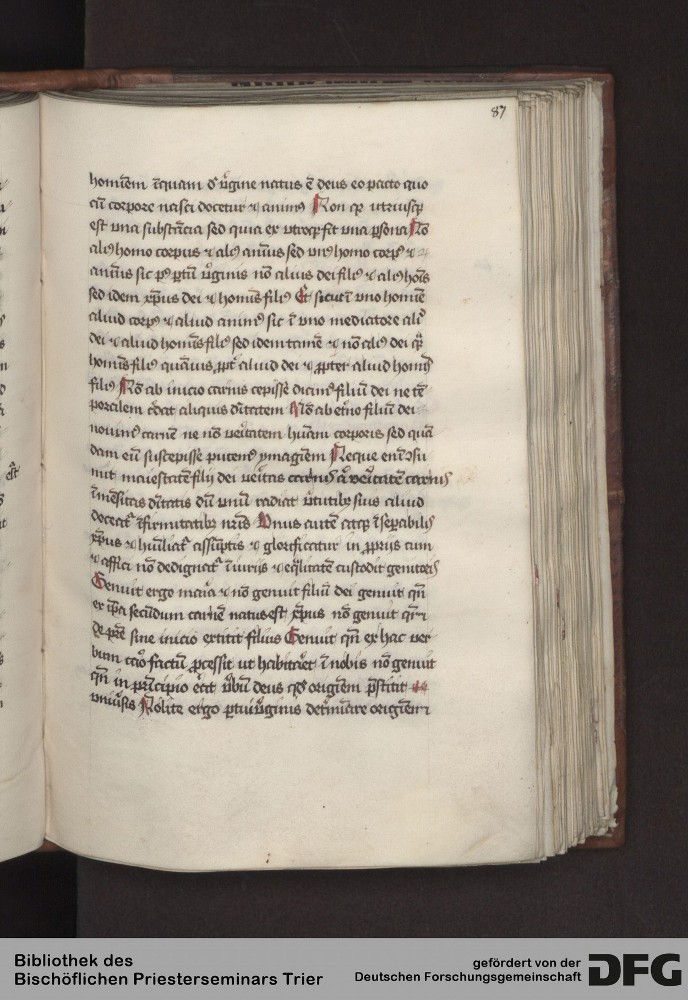 87
homiem iquam d' v'gine natus ē deus eo pacto quo
cū corpore nasci docetur & animꝰ Non qꝛ utriusqꝫ
est una substācia sed quia ex utroqꝫ fit una psona Nō
aliꝰ homo corpus & aliꝰ animus sed unꝰ homo corpꝰ &
animus sic pꝰ ptū v'ginis nō alius dei filiꝰ & aliꝰ hoīs
sed idem xp̄us dei & homīs filiꝰ Et sicut ī uno homīe
aliud corpꝰ & aliud animꝰ sic ī uno mediatore aliꝰ
dei & aliud homīs filiꝰ sed idem tamē & nō aliꝰ dei qꝛ
homīs filiꝰ quāuis ppt' aliud dei & ppter aliud homīs
filiꝰ Nō ab inicio carnis cepisse dicimꝰ filiū dei ne tē
poralem c'dat aliquis dītatem Nō ab et'no filiū dei
nouimꝰ carnē ne nō v'itatem hūani corporis sed quā
dam eū suscepisse putemꝰ ymagīem Neque enī ɔsu
mit maiestatē filij dei v'itas carnis aut v'itatē carnis
īmēsitas dītatis dū unū radiat v'tutibꝫ suis aliud
doceat' īfirmitatibꝫ nr̄is Unus autē atqꝫ īsepabilis
xp̄us & hūiliat' assūptis & glorificatur in pprijs cum
& affici nō dedignat' īiurijs & eq̄litatē custodit genitoris
Genuit ergo maria & nō genuit filiū dei genuit qn̄
ex ip̄a secūdum carnē natus est xp̄us nō genuit qn̄
de pr̄e sine inicio extitit filius Genuit qn̄ ex hac ver
bum caro factū pcessit ut habitaret ī nobis nō genuit
qn̄ in pr̄icipio erat v'bū deus qd' origīem p̄stitit
uniu'sis Nolite ergo ptui v'ginis det'minare origīem
est
Bibliothek des
Bischöflichen Priesterseminars Trier
gefördert von der
Deutschen Forschungsgemeinschaft
DFG